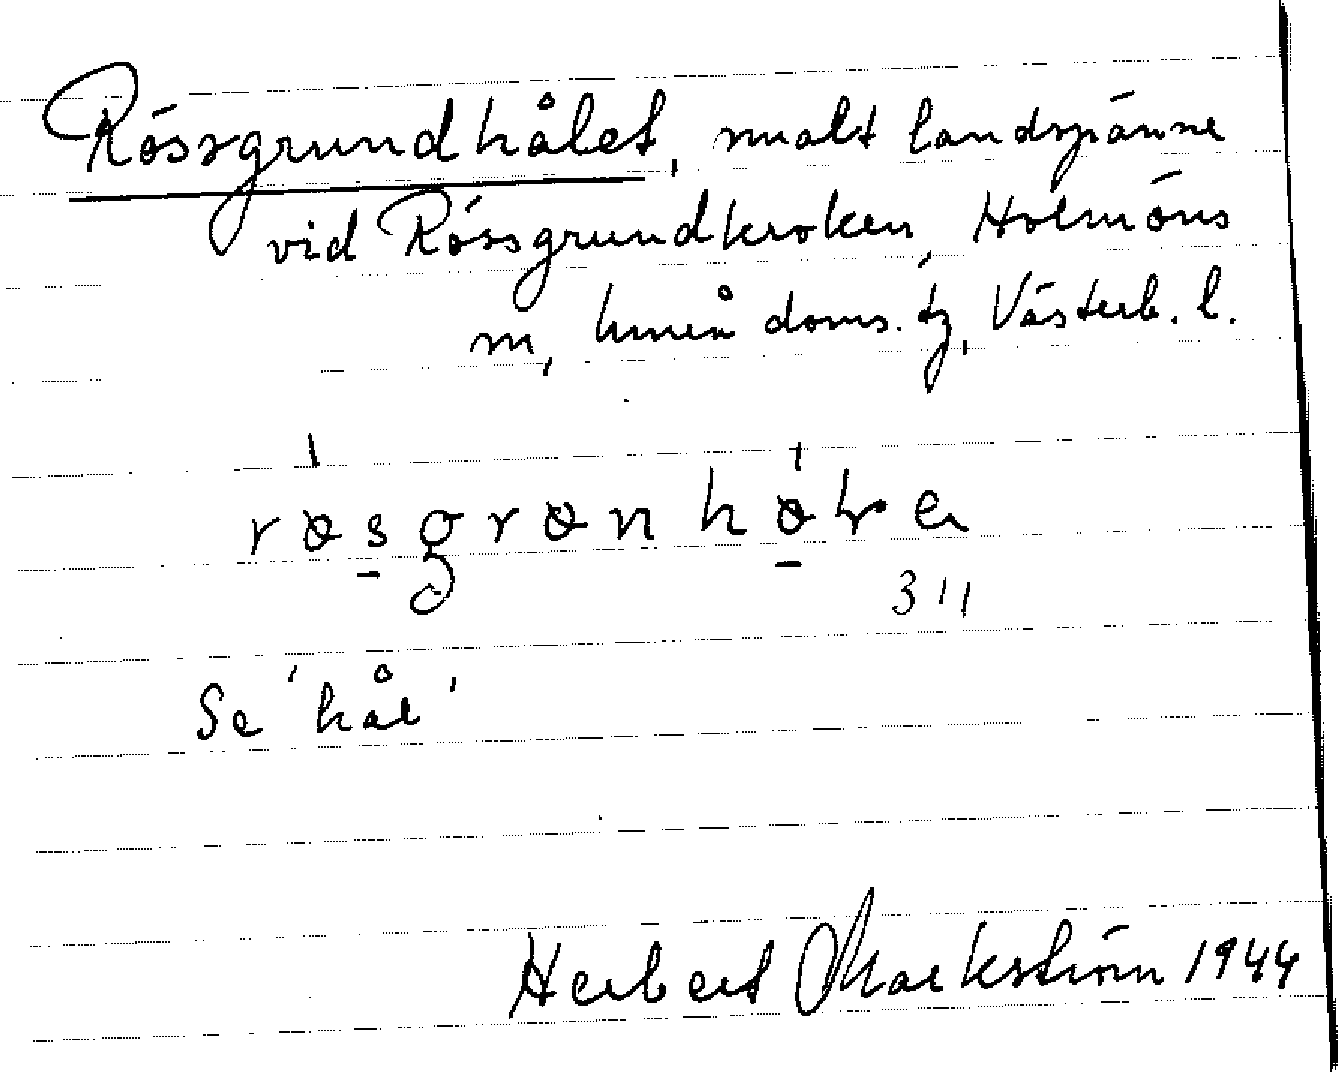 Rössgrundhålet, smalt landspänne
vid Rössgrundkroken, Holmöns
sn, Umeå doms. tg, Västerb. l.
røsgrønhøłre
311
Se 'hål'
Herbert Markström 1944